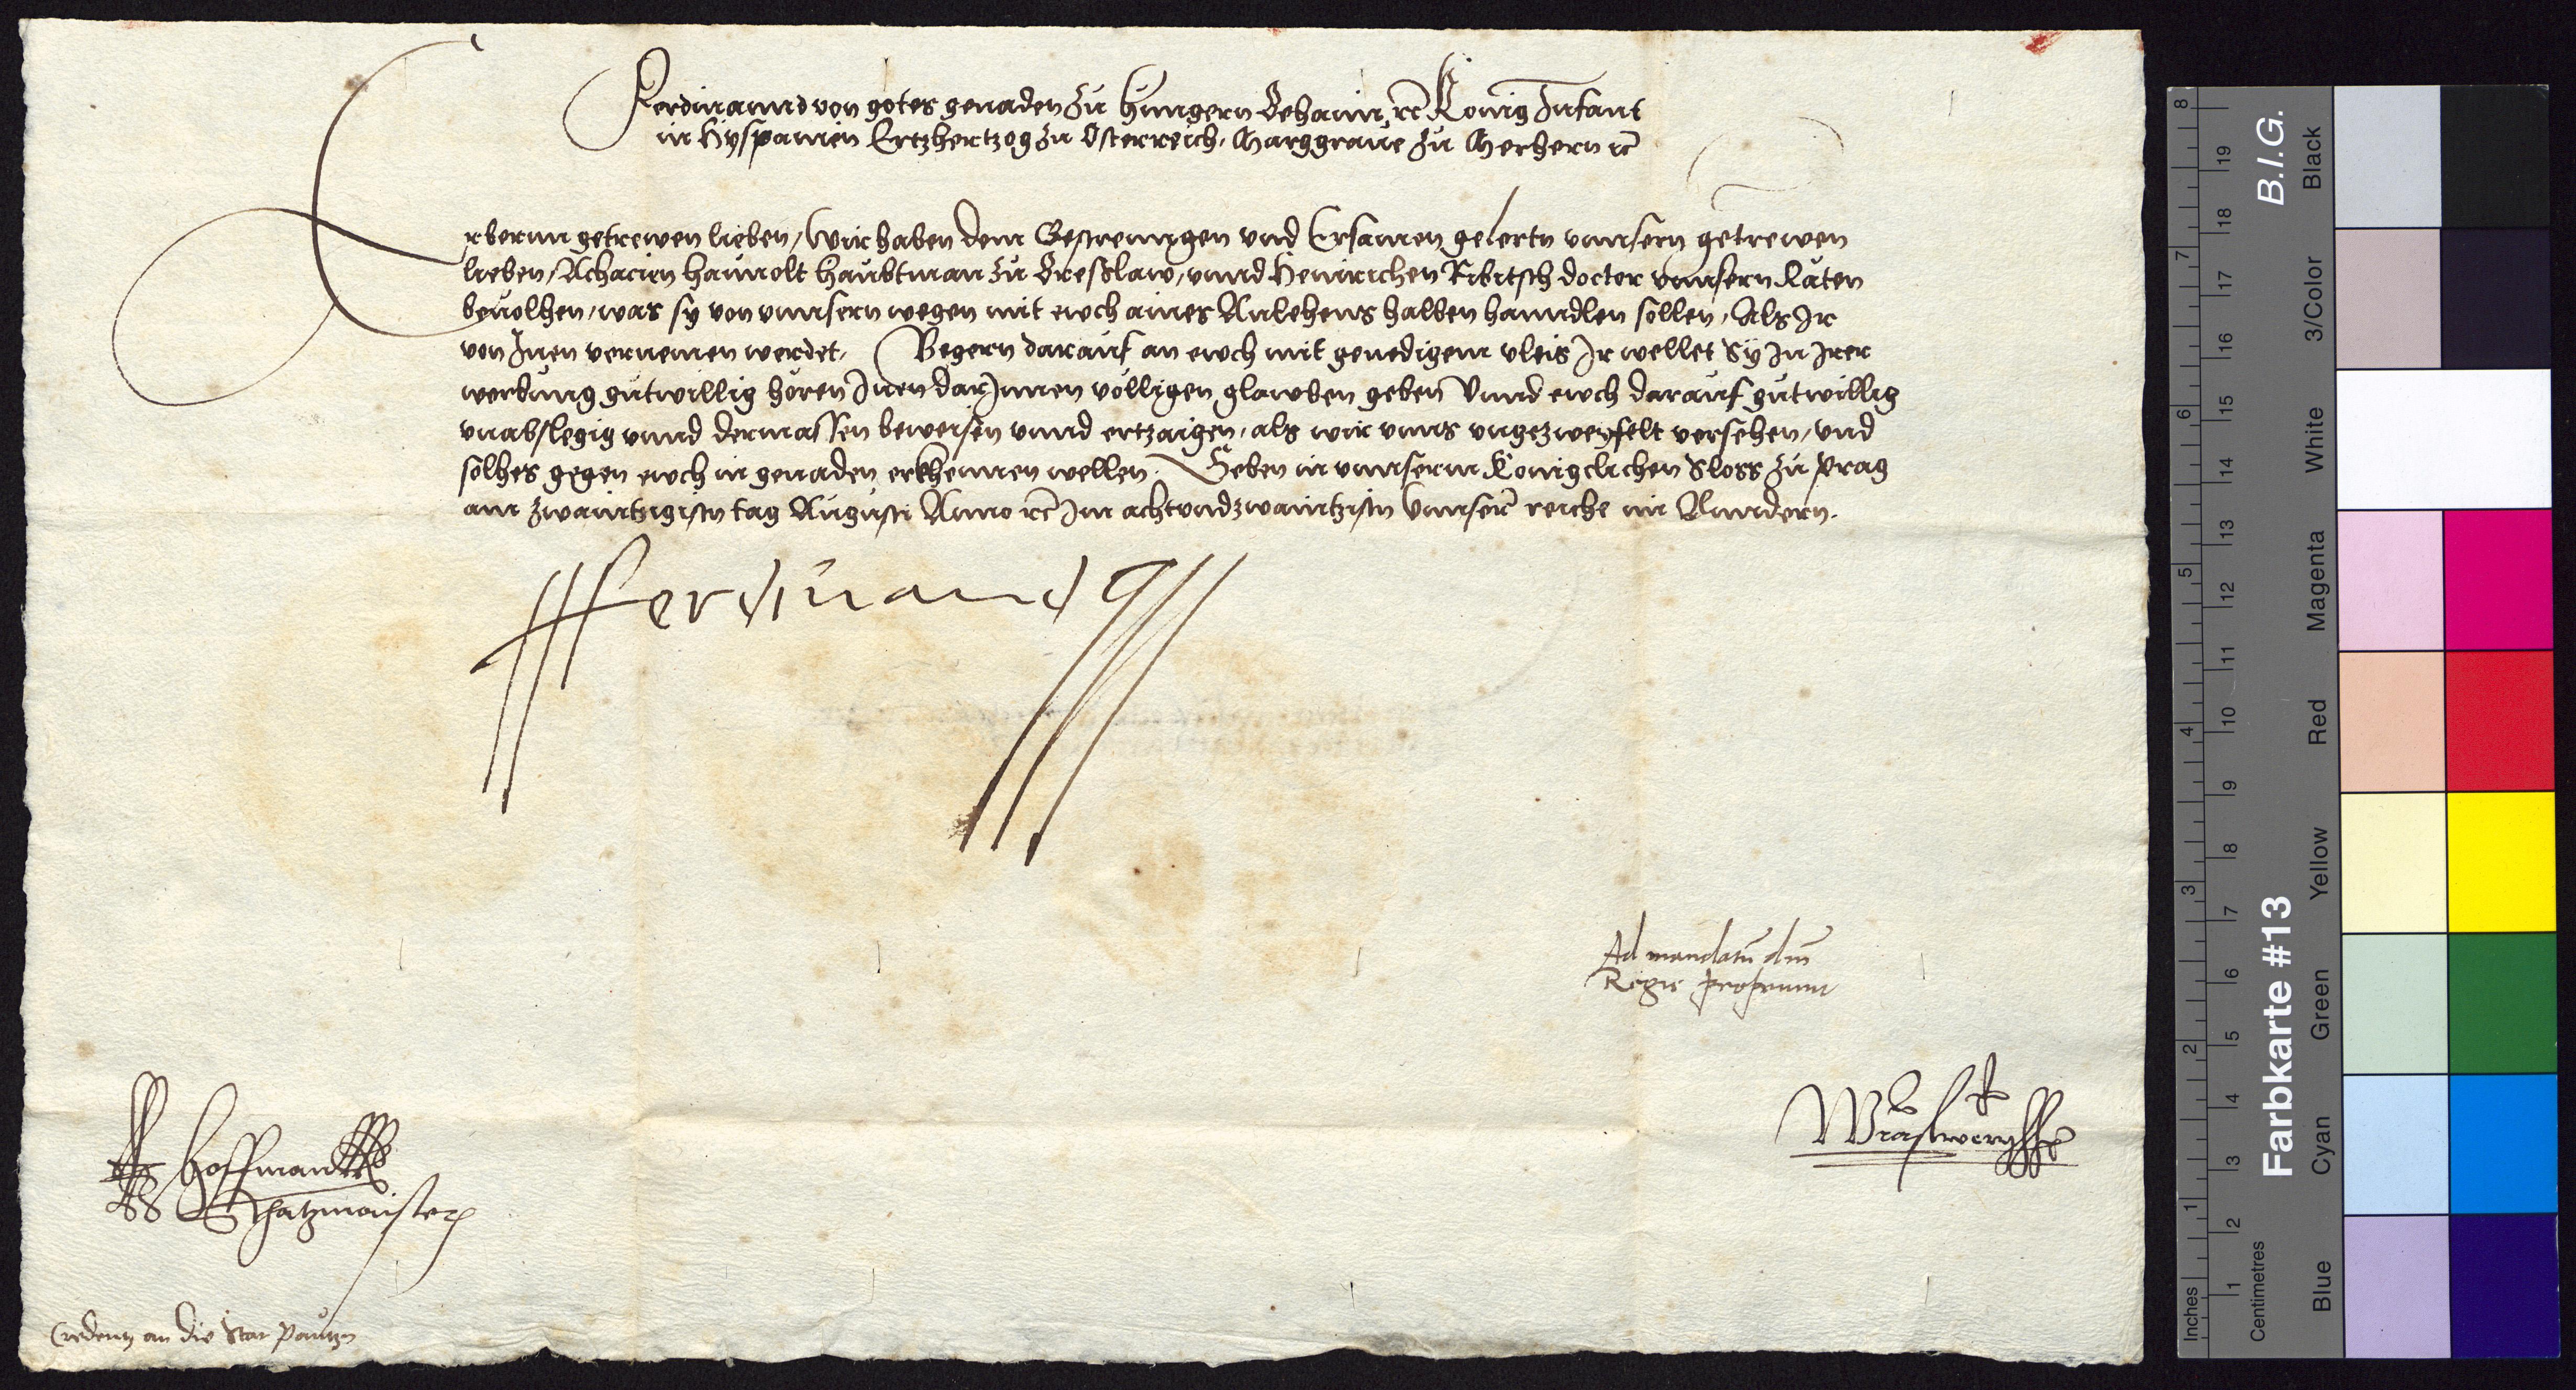 Ferdinannd von gotes genaden zu Hungern Behaim rc Konig Infant
in Hyspanien Ertzhertzog zu Osterreich, Marggraue zu Merhern rc
Erbernn getrewen lieben, Wir haben dem Gestrenngen vnd Ersamen gelertn vnnsern getrewen
lieben, Achacien Haunolt Haubtman zu Bresslaw, vnnd Heinrichen Ribitsch doctor vnnsern Räten
beuolhen, was sy von vnnsern wegen mit euch aines Anlehens halben hanndlen sollen, Als Ir
von Inen vernemen werdet, Begern darauf an euch mit genedigem vleis Ir wellet Sy In Irer
werbung gutwillig hören Inen darJnnen völligen glawben geben Vnnd euch darauf gutwillig
vnabslegig vnnd dermassen beweisen vnnd ertzaigen, als wir vnns vngezweyfelt versehen, vnd
solhes gegen euch in genaden erkhennen wellen. Geben in vnnserm Koniglichen Sloss zu Prag
am zwaintzigistn tag Augusti Anno rc Im achtvndzwaintzistn Vnnserr reiche im Anndern.
Ferdinand
Ad mandatū dnī
Regis proprium
Hoffman
Schatzmaister
Credentz an die Stat Pautzn
8 7 6 5 4 3 2 1 Inches
19 18 17 16 15 14 13 12 11 10 9 8 7 6 5 4 3 2 1 Centimetres
B.I.G.
Farbkarte #13
Black
3/Color
White
Magenta
Red
Yellow
Green
Cyan
Blue